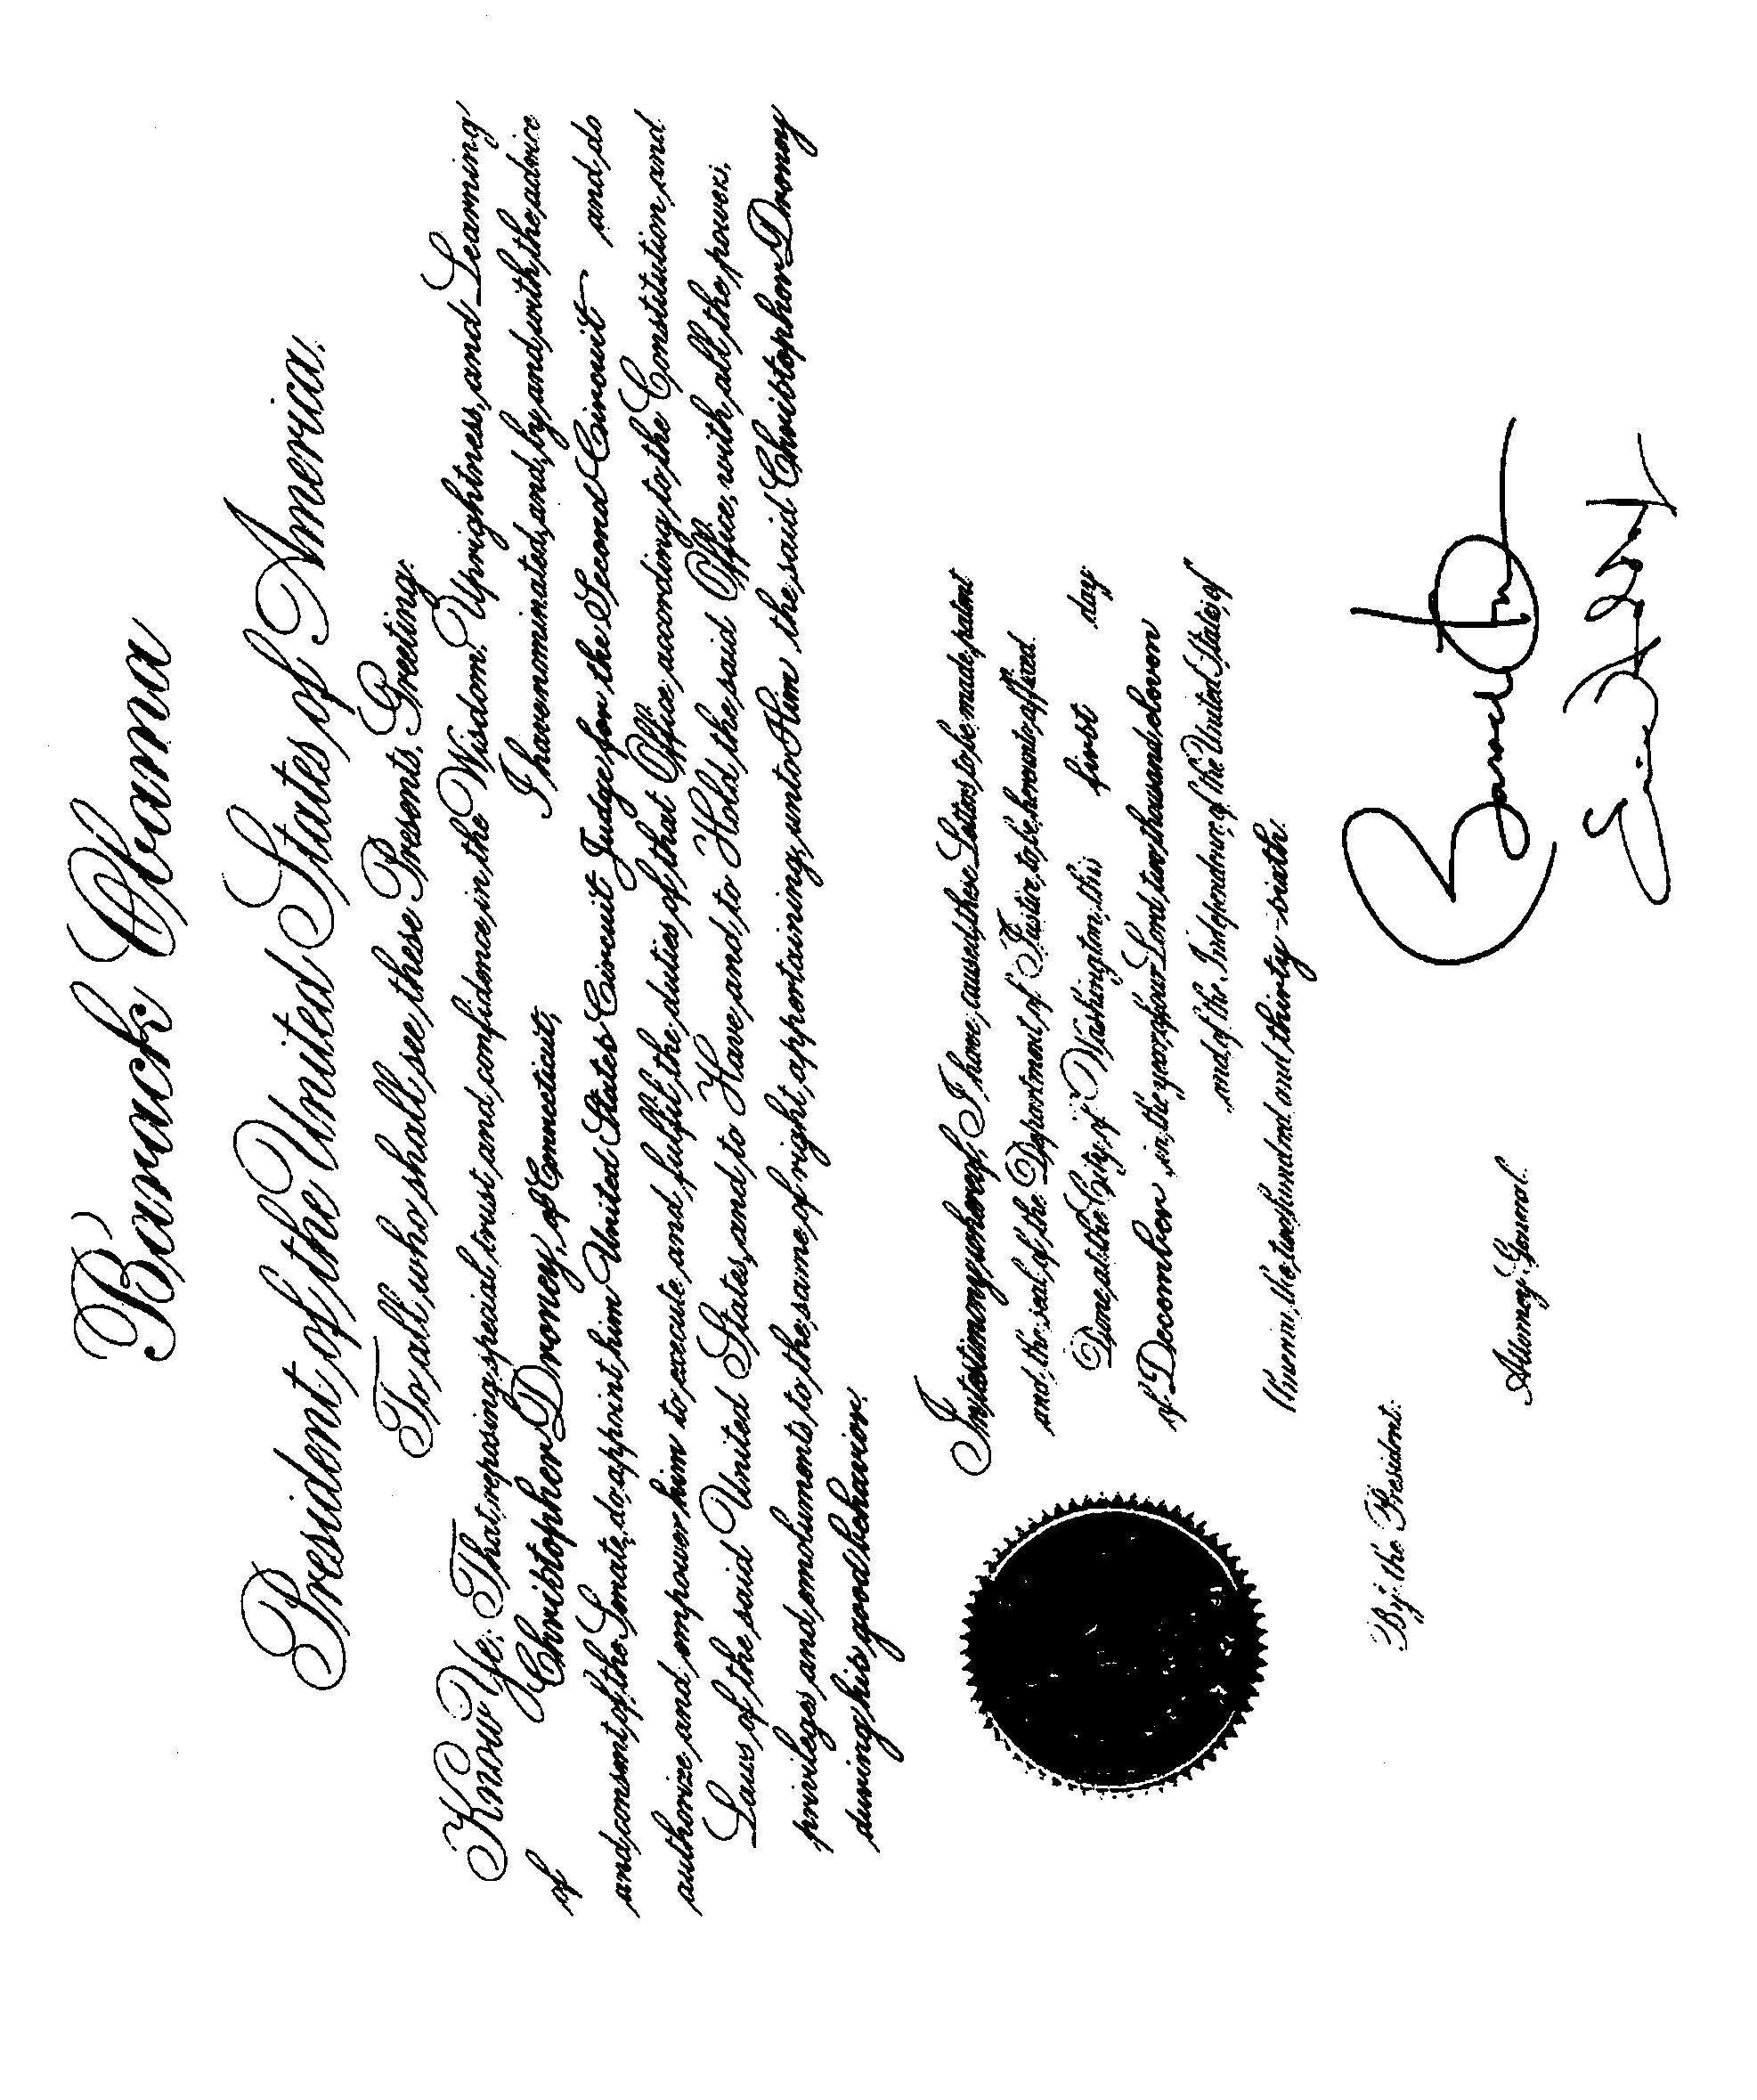 Barack Obama
President of the United States of America.
To all who shall see these Presents, Greeting:
Know Ye: That, reposing special trust and confidence in the Wisdom, Uprightness, and Learning
of Christopher Droney, of Connecticut, I have nominated, and, by and with the advice
and consent of the Senate, do appoint him United States Circuit Judge for the Second Circuit and do
authorize and empower him to execute and fulfil the duties of that Office according to the Constitution and
Laws of the said United States, and to Have and to Hold the said Office, with all the powers,
privileges and emoluments to the same of right appertaining, unto Him the said Christopher Droney
during his good behavior.
In testimony whereof, I have caused these Letters to be made patent
and the seal of the Department of Justice to be hereunto affixed.
Done at the City of Washington, this first day
of December, in the year of our Lord two thousand eleven
and of the Independence of the United States of
America the two hundred and thirty-sixth.
Barack Obama
By the President:
Eric Holder
Attorney General.